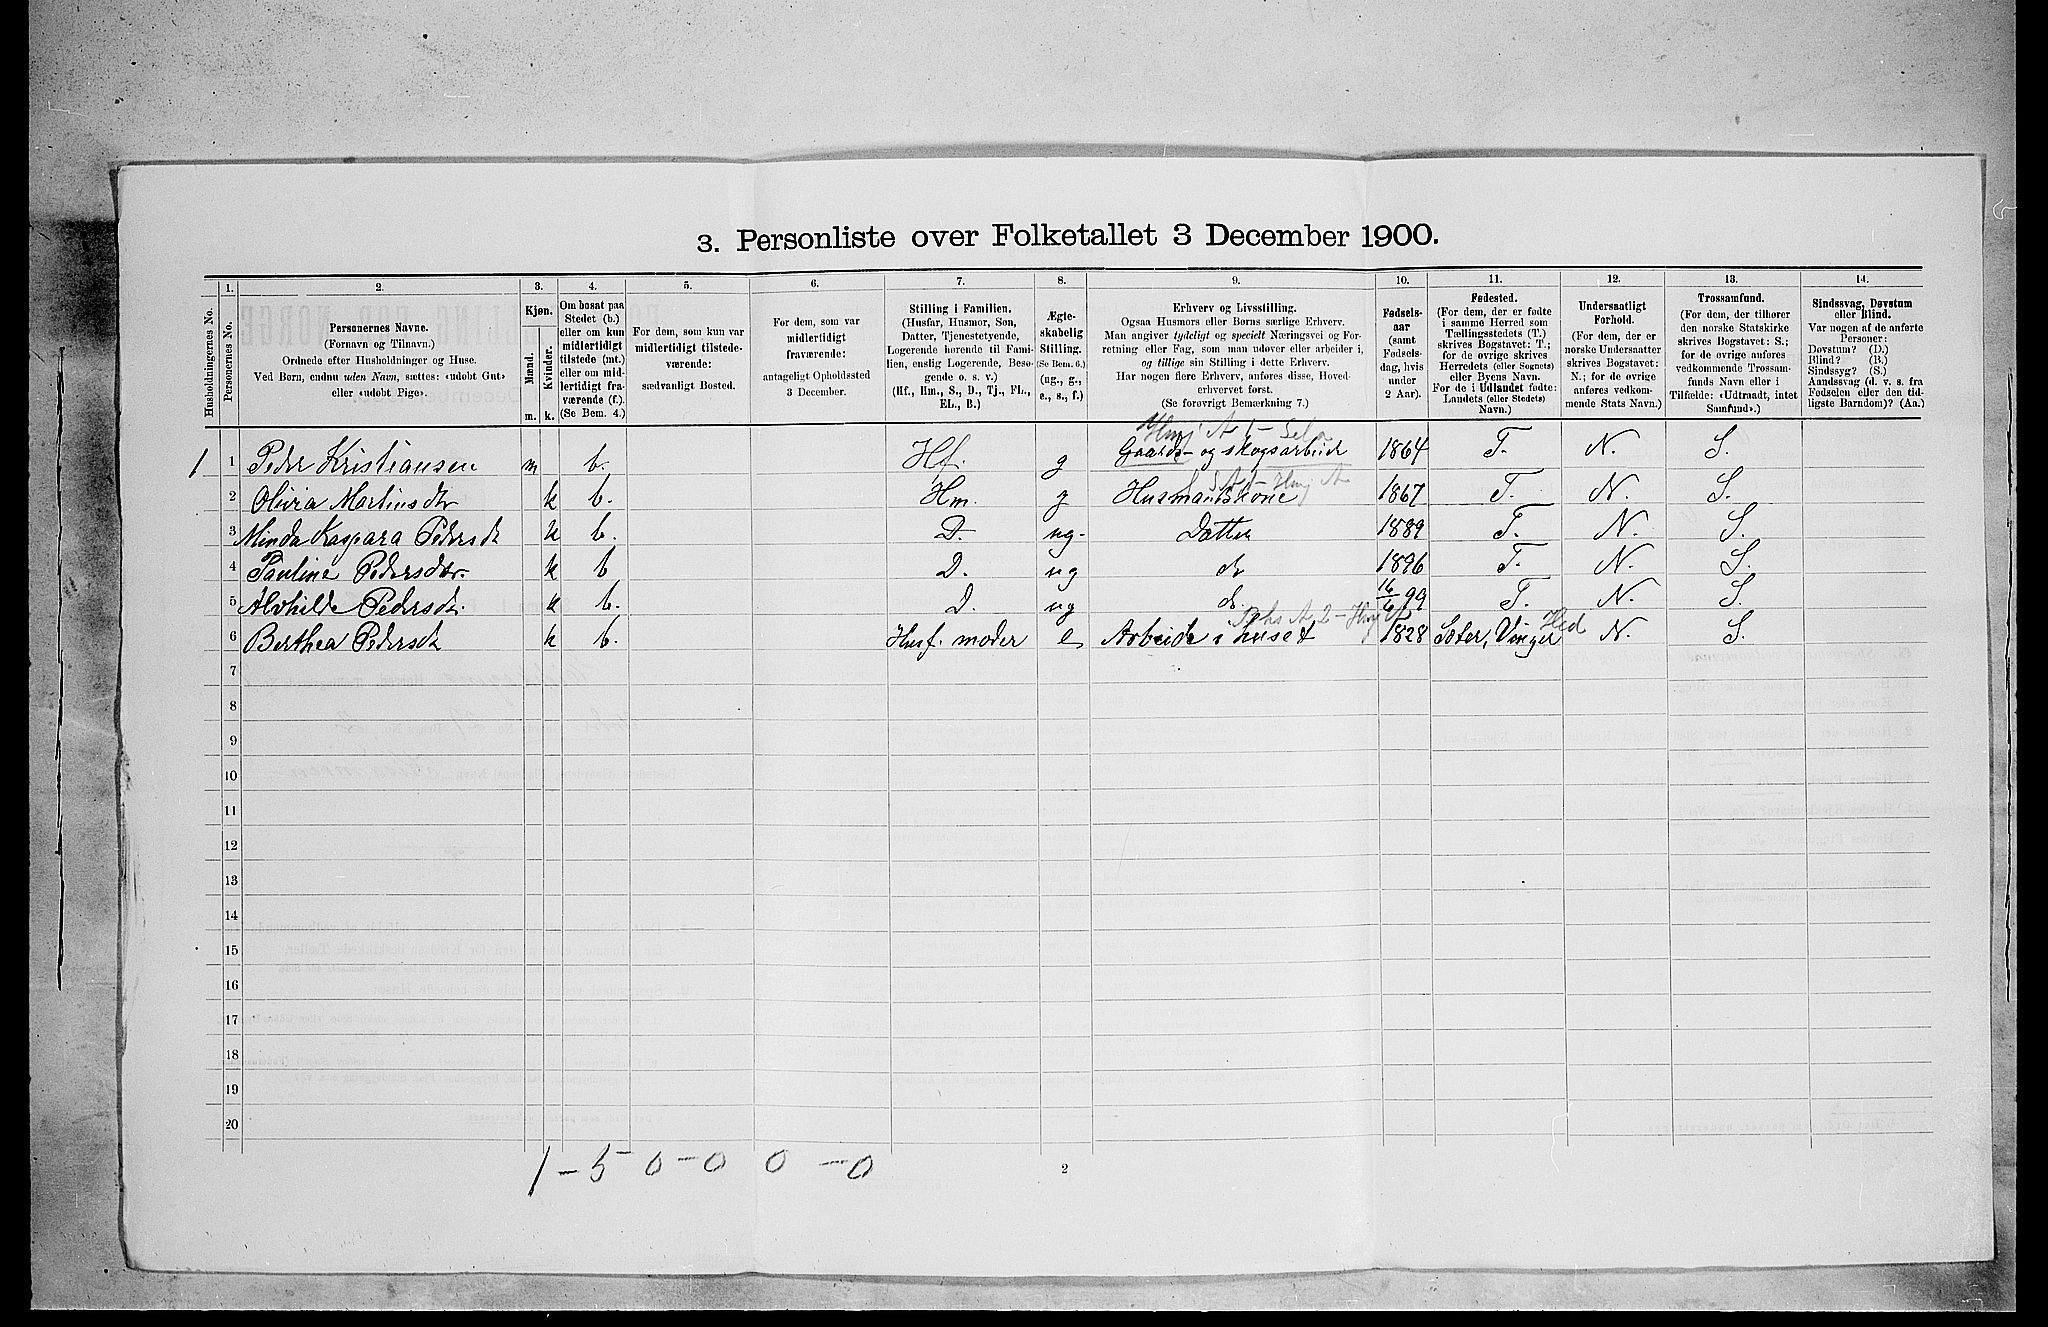 3. Personliste over Folketallet 3 December 1900.
1. 2. 3. 4. 5. 6. 7. 8. 9. 10. 11. 12. 13. 14.
Husholdningernes No.
Personernes No.
Personernes Navne.
(Fornavn og Tilnavn.)
Ordnede efter Husholdninger og Huse.
Ved Børn, endnu uden Navn, sættes: «udøbt Gut»
eller «udøbt Pige».
Kjøn.
Mænd.
Kvinder.
m. k.
Om bosat paa
Stedet (b.)
eller om kun
midlertidigt
tilstede (mt.)
eller om mid-
lertidigt fra-
værende (f.).
(Se Bem. 4.)
For dem, som kun var
midlertidigt tilstede-
værende:
sædvanligt Bosted.
For dem, som var
midlertidigt
fraværende:
antageligt Opholdssted
3 December.
Stilling i Familien.
(Husfar, Husmor, Søn,
Datter, Tjenestetyende,
Logerende hørende til Fami-
lien, enslig Logerende, Besø-
gende o. s. v.)
(Hf., Hm., S., D., Tj., FL.,
EL., B.)
Ægte-
skabelig
Stilling.
(Se Bem. 6.)
(ug., g.,
e., s., f.)
Erhverv og Livsstilling.
Ogsaa Husmors eller Børns særlige Erhverv.
Man angiver tydeligt og specielt Næringsvei og For-
retning eller Fag, som man udøver eller arbeider i,
og tillige sin Stilling i dette Erhverv.
Har nogen flere Erhverv, anføres disse, Hoved-
erhvervet først.
(Se forøvrigt Bemærkning 7.)
Fødsels-
aar
(samt
Fødsels-
dag, hvis
under
2 Aar).
Fødested.
(For dem, der er fødte
i samme Herred som
Tællingsstedets (T.)
skrives Bogstavet: T.;
for de øvrige skrives
Herredets (eller Sognets)
eller Byens Navn.
For de i Udlandet fødte:
Landets (eller Stedets)
Navn.)
Undersaatligt
Forhold.
(For dem, der er
norske Undersaatter
skrives Bogstavet:
N.; for de øvrige
anføres vedkom-
mende Stats Navn.)
Trossamfund.
(For dem, der tilhører
den norske Statskirke
skrives Bogstavet: S.;
for de øvrige anføres
vedkommende Trossam-
funds Navn eller i
Tilfælde: «Udtraadt, intet
Samfund».)
Sindssvag, Døvstum
eller Blind.
Var nogen af de anførte
Personer:
Døvstum? (D.)
Blind? (B.)
Sindssyg? (S.)
Aandssvag (d. v. s. fra
Fødselen eller den tid-
ligste Barndom)? (Aa.)
1 1 Peder Kristiansen m b. Hf. g Gaards- og skogsarbeide 1864 T. N. S.
2 Olivia Martinsdtr k b. Hm. g Husmandskone 1867 T. N. S.
3 Minda Kaspara Pedersdt k b. D. ug. Datter 1889 T. N. S.
4 Pauline Pedersdtr. k b D. ug do 1896 T. N. S.
5 Alvhilde Pedersdt. k b. D. ug do. 16/6 99 T. N. S.
6 Berthea Pedersdt k b. Husf. moder e Arbeide i huset 1828 Sæter, Vinger Hed N. S.
7
8
9
10
11
12
13
14
15
16
17
18
19
20
1 – 5 0 – 0 0 – 0
2